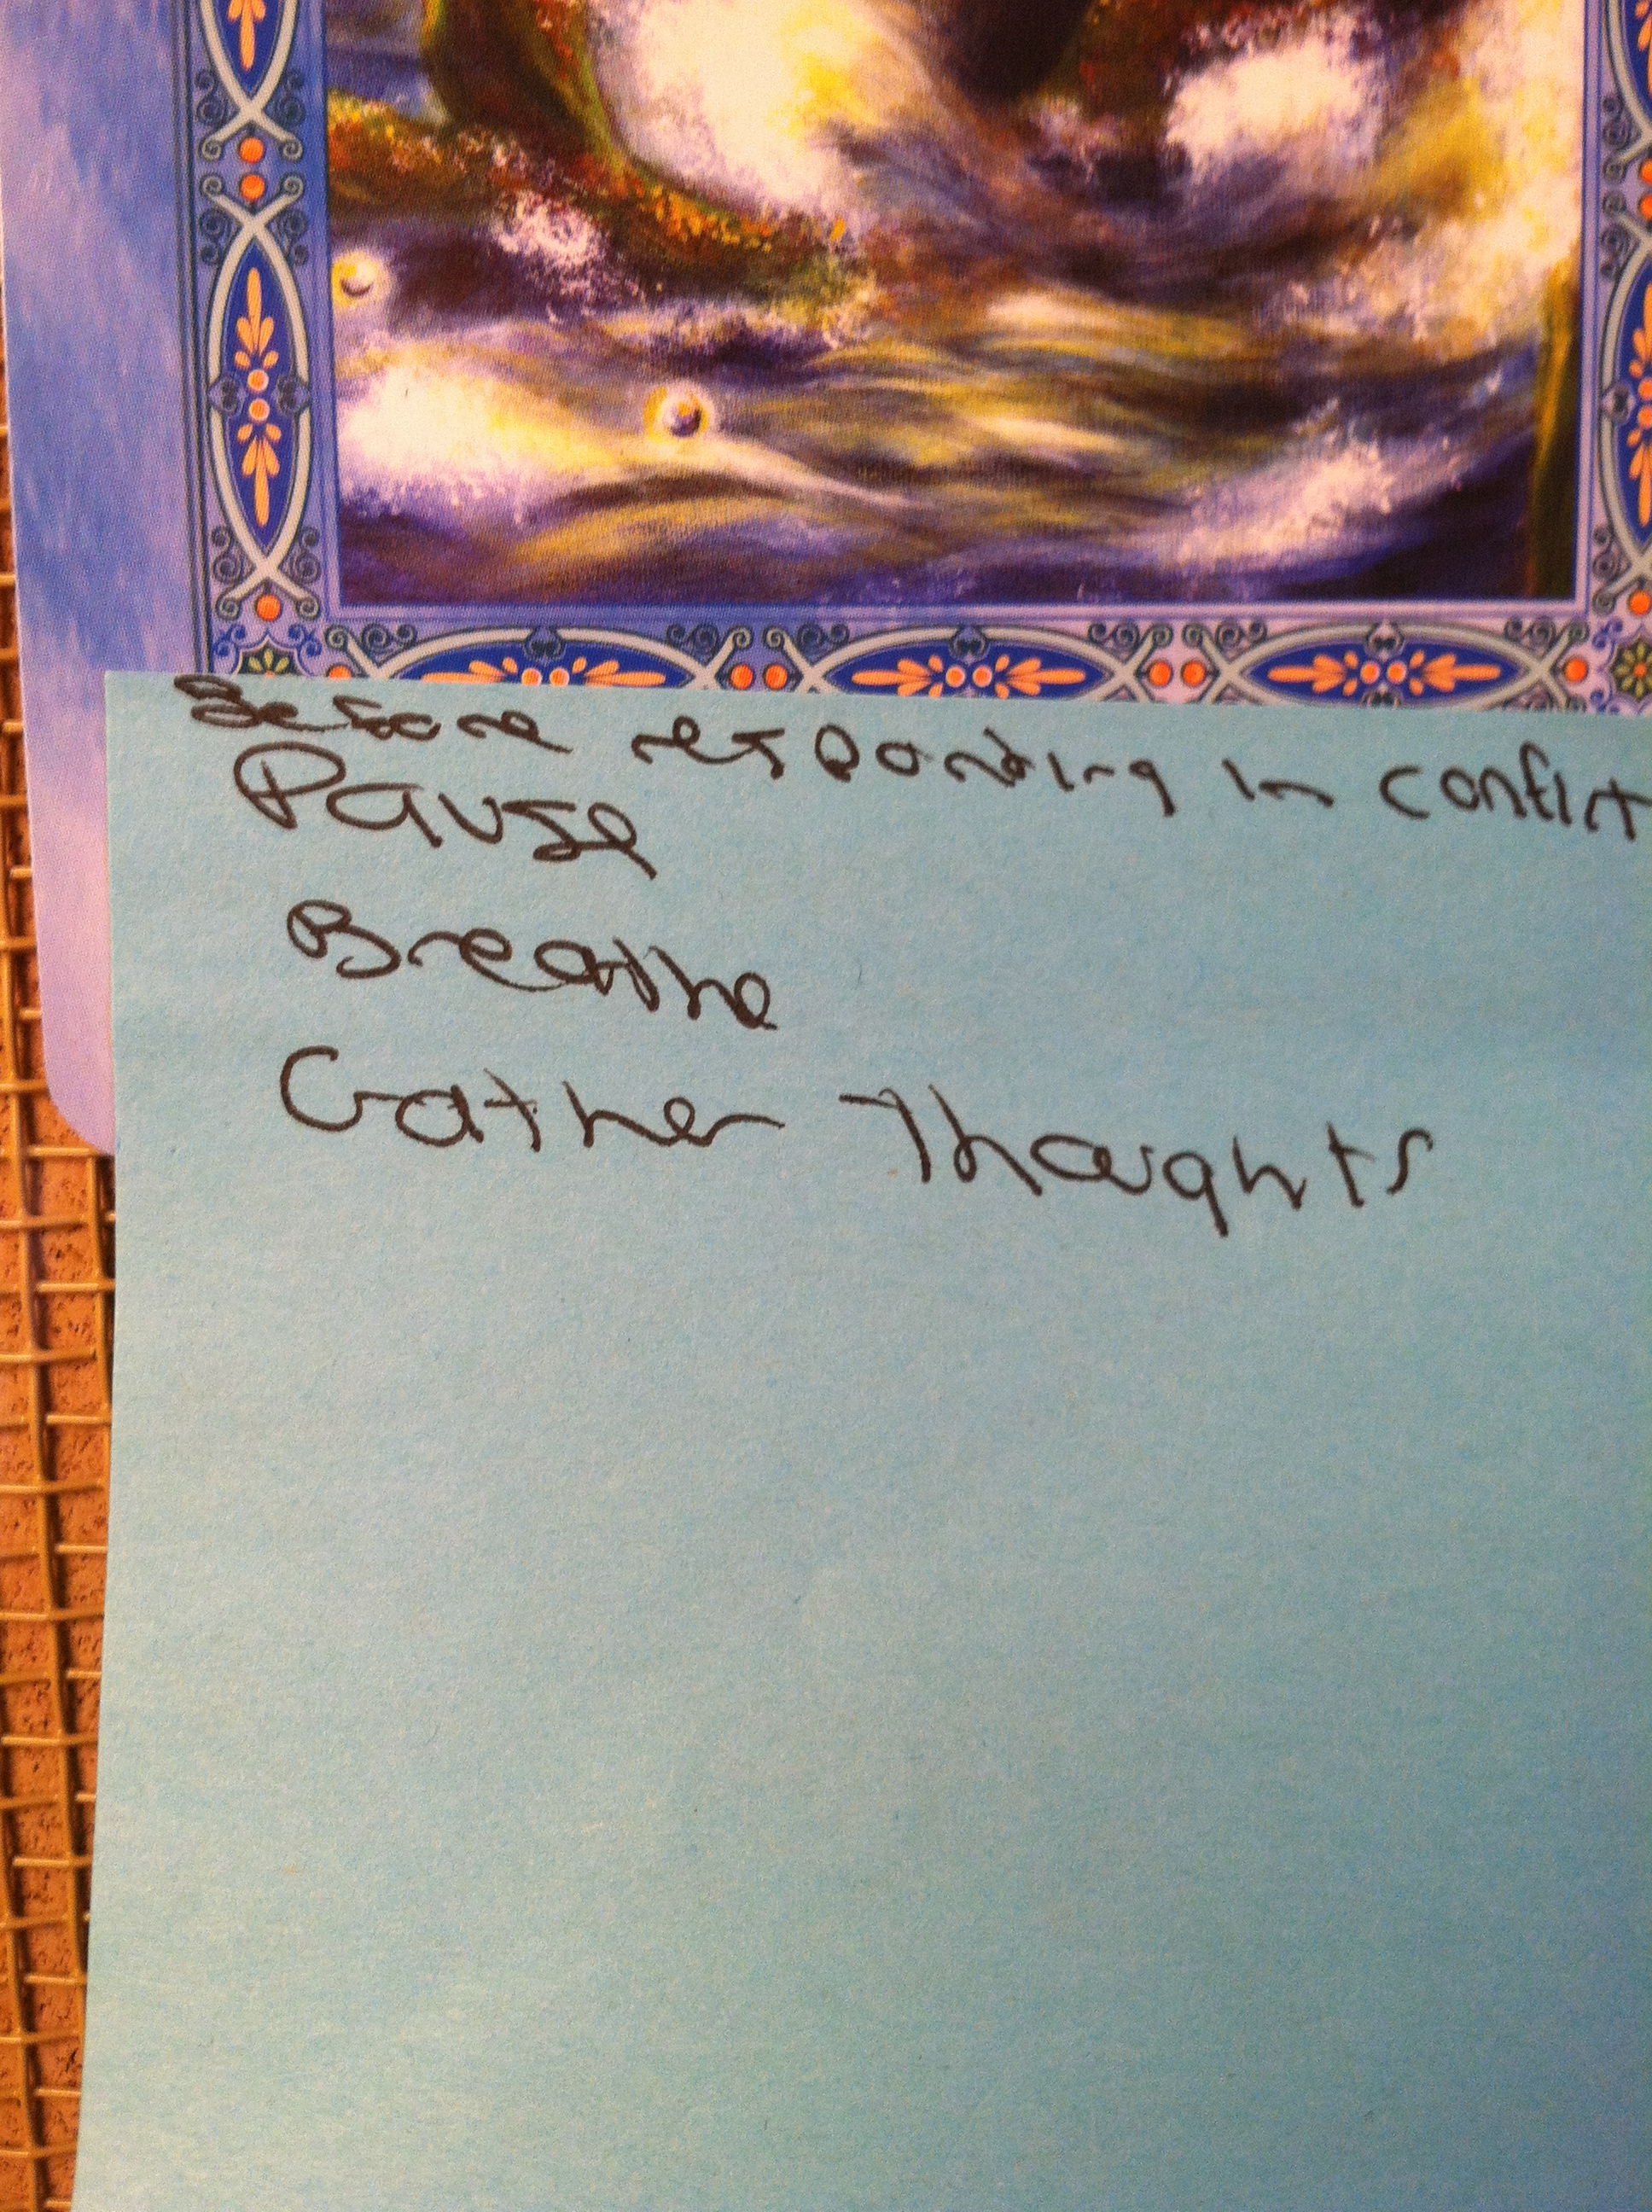 Before responding in conflict
Pause
Breathe
Gather Thoughts